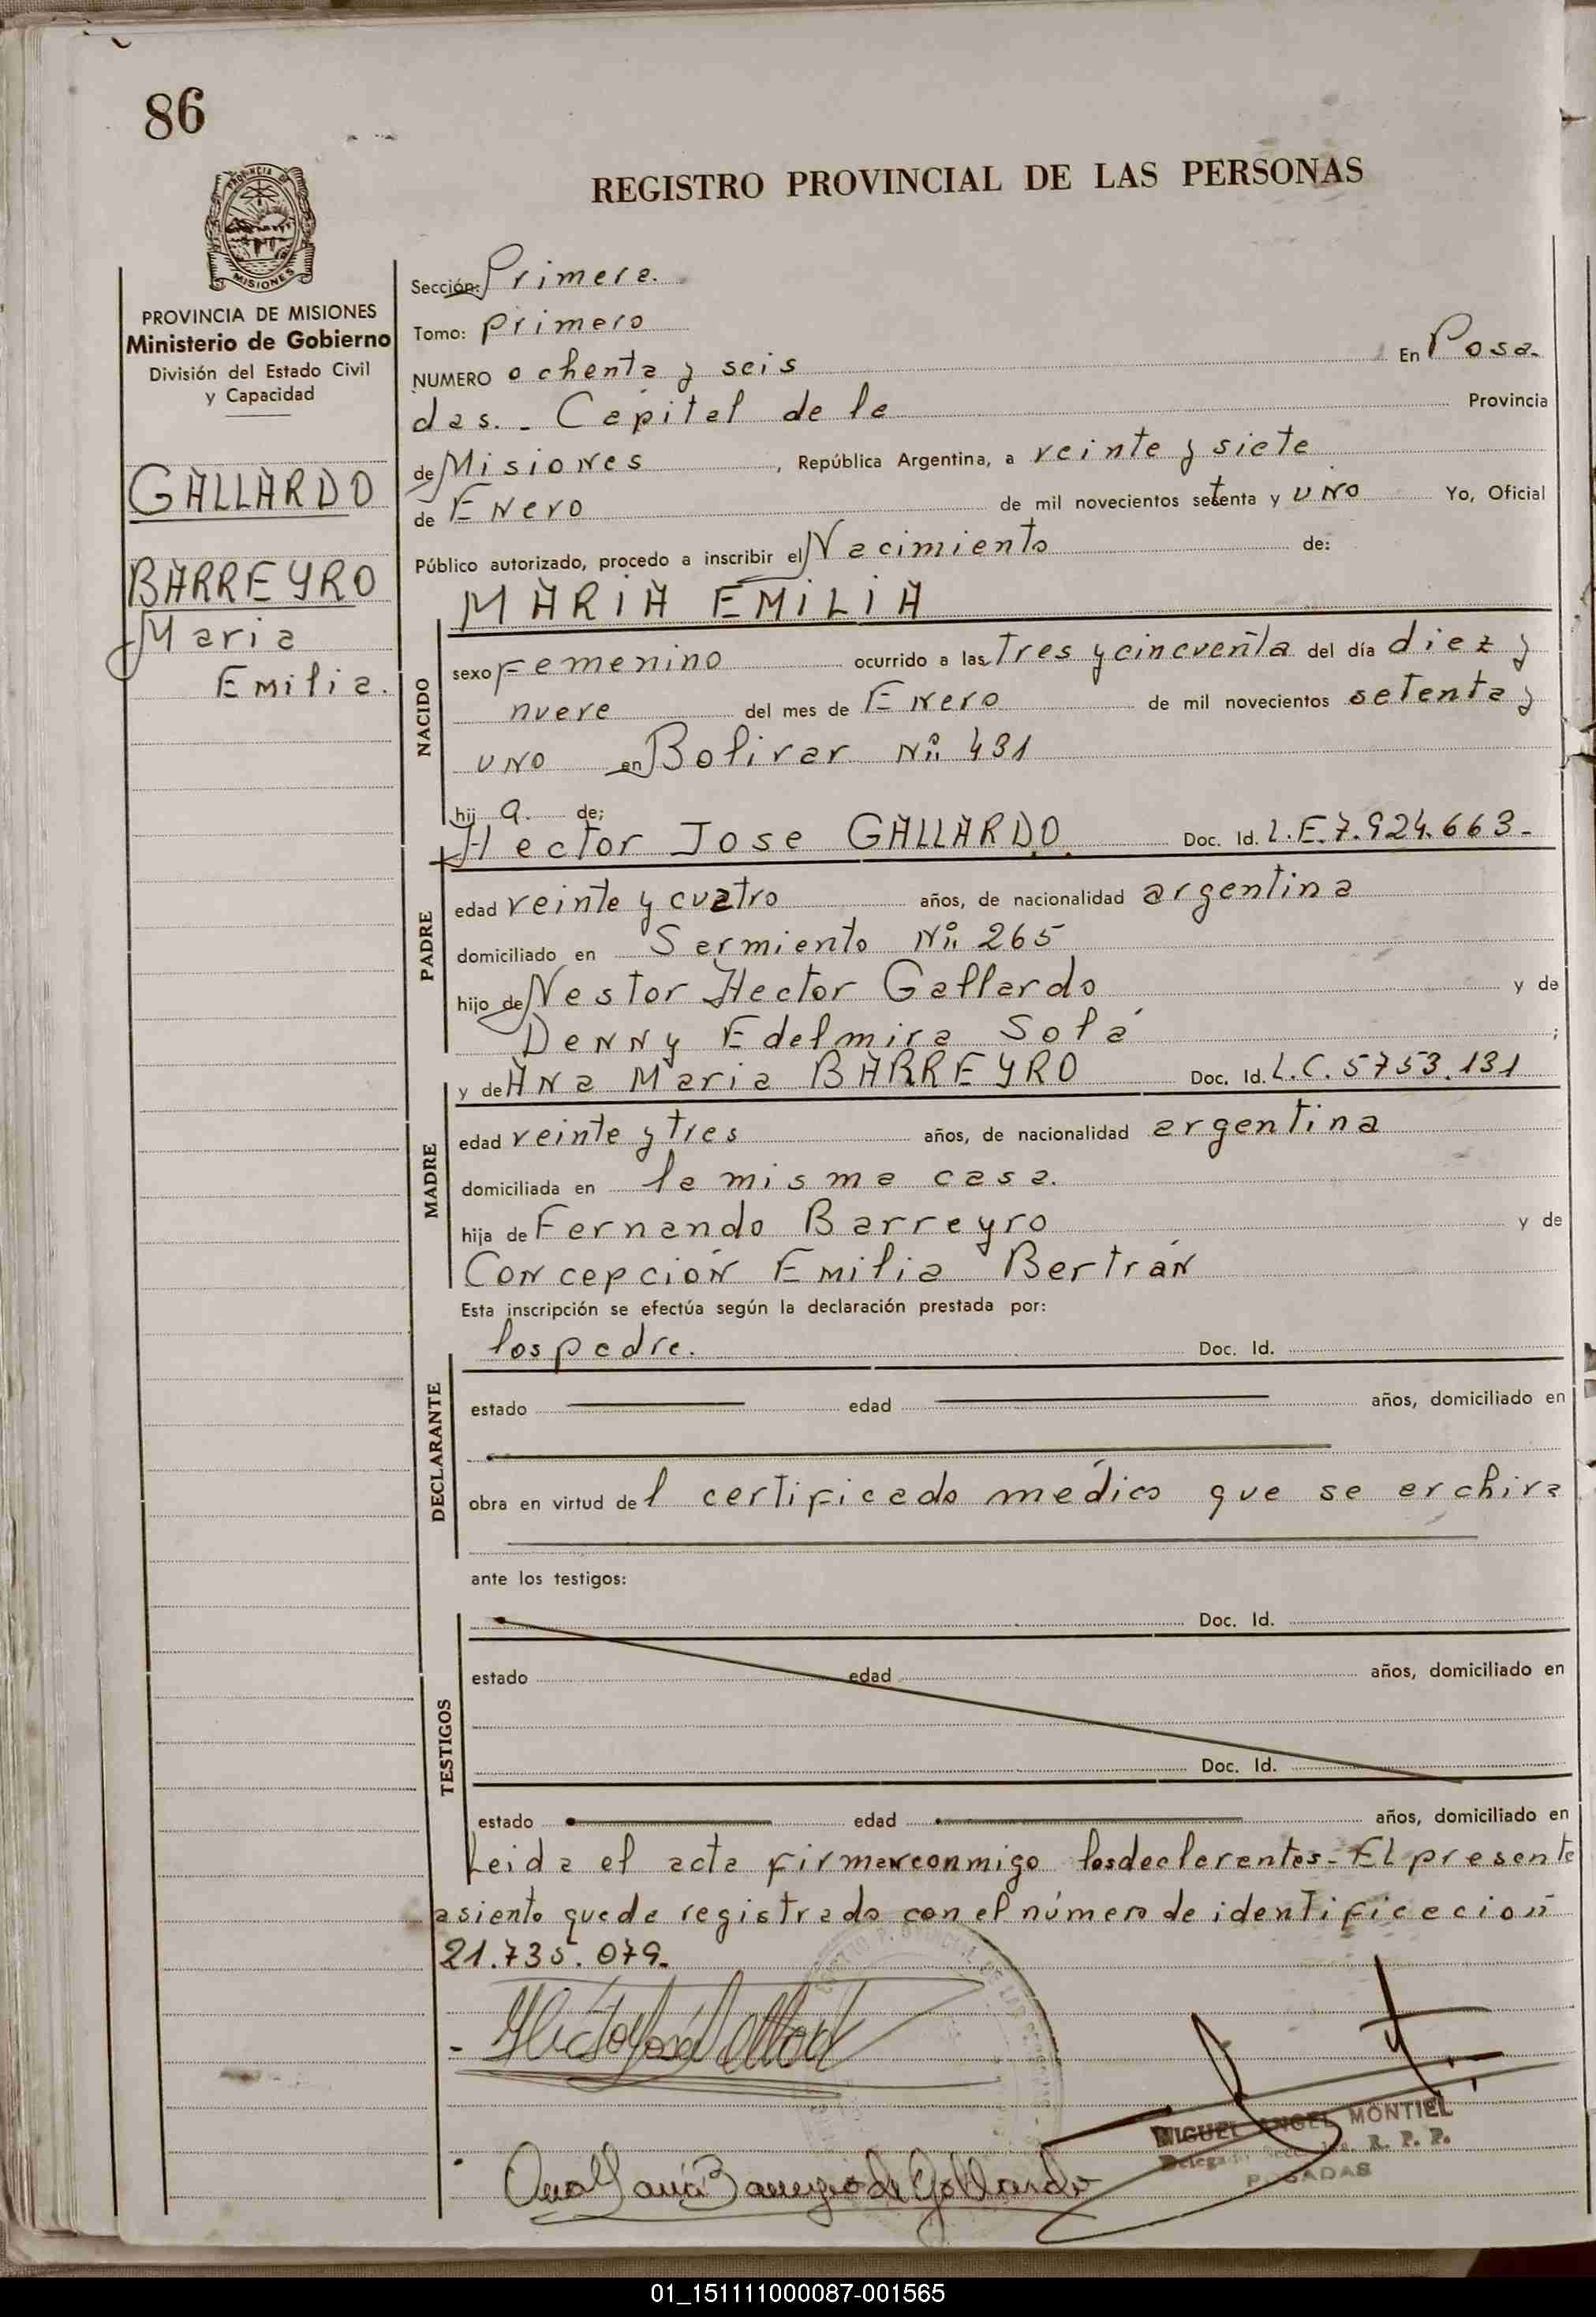 86
PROVINCIA DE
MISIONES
REGISTRO PROVINCIAL DE LAS PERSONAS
PROVINCIA DE MISIONES
Ministerio de Gobierno
División del Estado Civil
y Capacidad
GALLARDO
BARREYRO
Maria
Emilia.
Sección: Primera.
Tomo: primero
NUMERO ochenta y seis En Posa-
das.- Capital de la Provincia
de Misiones, República Argentina, a veinte y siete
de Enero de mil novecientos setenta y uno Yo, Oficial
Público autorizado, procedo a inscribir el Nacimiento de:
MARIA EMILIA
NACIDO
sexo Femenino ocurrido a las Tres y cincuenta del día diez y
nueve del mes de Enero de mil novecientos setenta y
uno en Bolivar Nº 431
hij a. de;
Hector Jose GALLARDO. Doc. Id. L.E.7.924.663.-
PADRE
edad veinte y cuatro años, de nacionalidad argentina
domiciliado en Sarmiento Nº 265
hijo de Nestor Hector Gallardo y de
Denny Edelmira Solá ;
y de Ana Maria BARREYRO Doc. Id. L.C. 5753.131
MADRE
edad veinte y tres años, de nacionalidad argentina
domiciliada en la misma casa.
hija de Fernando Barreyro y de
Concepción Emilia Bertrán
Esta inscripción se efectúa según la declaración prestada por:
los padre. Doc. Id.
DECLARANTE
estado edad años, domiciliado en
obra en virtud del certificado médico que se archiva
ante los testigos:
Doc. Id.
TESTIGOS
estado edad años, domiciliado en
Doc. Id.
estado edad años, domiciliado en
Leida el acta firman conmigo los declarantes.- El presente
asiento queda registrado con el número de identificación
21.735.079.
Ana Maria Barreyro de Gallardo
MIGUEL ANGEL MONTIEL
R. P. P.
POSADAS
01_151111000087-001565